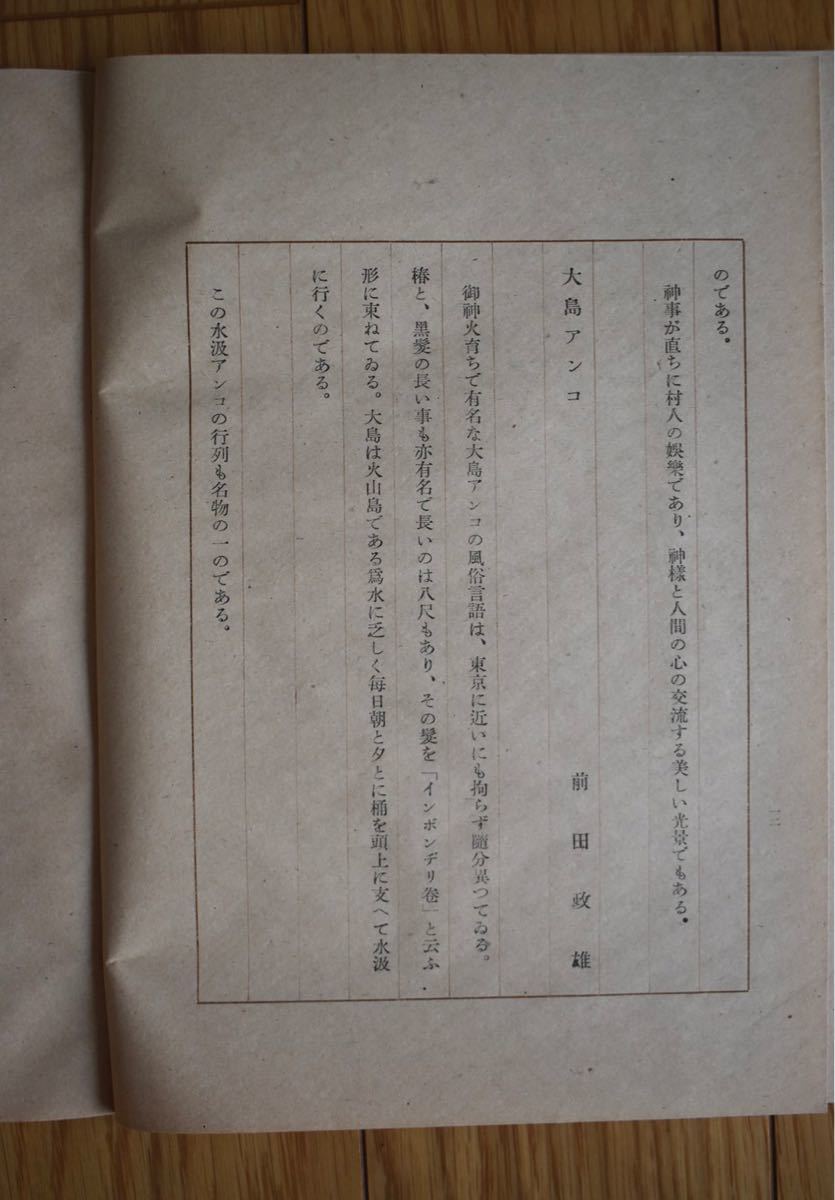 のである。
神事が直ちに村人の娯樂であり、神樣と人間の心の交流する美しい光景でもある。
大島アンコ
前田政雄
御神火育ちで有名な大島アンコの風俗言語は、東京に近いにも拘らず隨分異つてゐる。
椿と、黒髮の長い事も亦有名で長いのは八尺もあり、その髮を「インボンヂリ卷」と云ふ
形に束ねてゐる。大島は火山島である爲水に乏しく每日朝と夕とに桶を頭上に支へて水汲
に行くのである。
この水汲アンコの行列も名物の一のである。